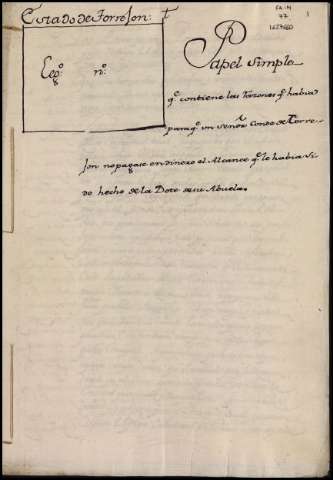 Estado de Torrejon: †
Leg.º n.º
Papel Simple
q.e contiene las razones q.e habia
para q.e un señor Conde de Torre-
jon no pagase en dinero el Alcance q.e le habia si-
do hecho de la Dote de su Abuela.